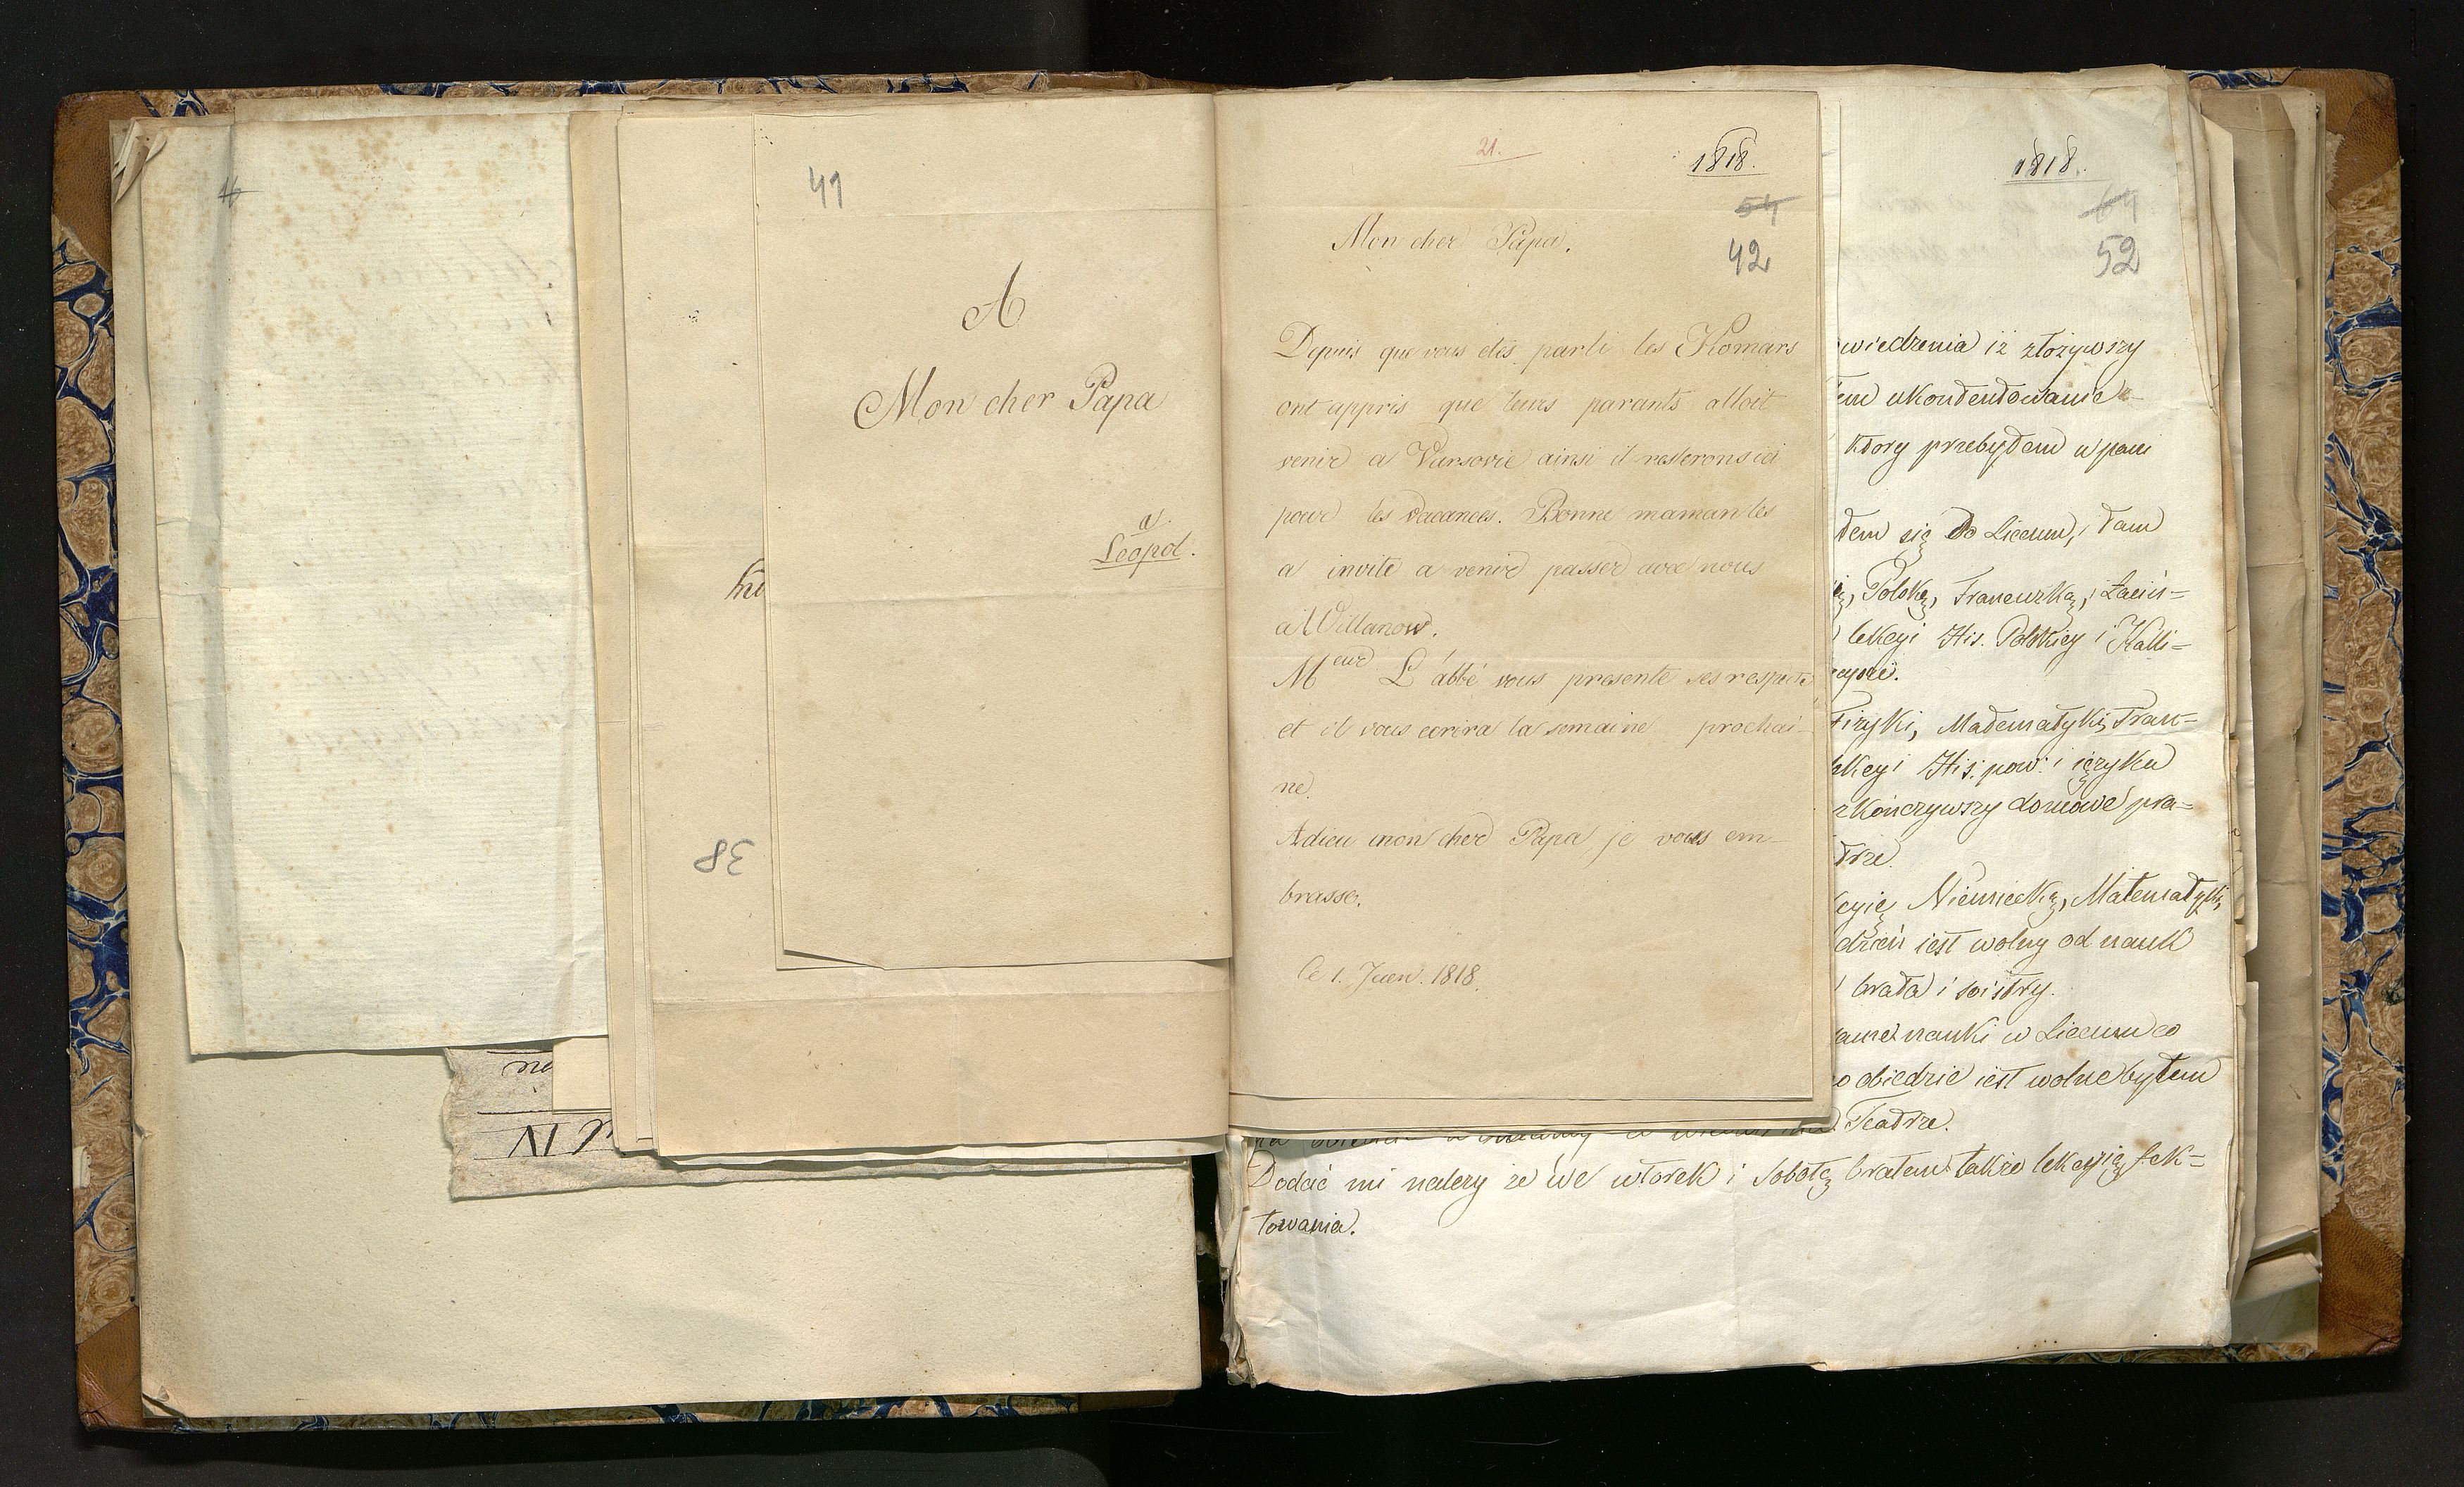 41
A
Mon cher Papa
a
Leopol.
38
21.
1818.
54
42
Mon cher Papa.
Depuis que vous etes parti les Komars
ont appris que leurs parants alloit
venir a Varsovie ainsi il resterons ici
pour les vacances. Bonne maman les
a invite a venir passer avec nous
a Willanow.
Meur L'abbé vous presente ses respects
et il vous ecrira la semaine prochai-
ne.
Adieu mon cher Papa je vous em-
brasse.
le 1. Juen. 1818.
1818.
64
52
wiedzenia iż złożywszy
ukontentowanie
ktory przebyłem w pani
łem się do Liceum, i tam
Polską, Francuzką, i Łaciń=
lekcyi His. Polskiey i Kalli=
Fizyki, Matematyki, Fran=
His. pow. i ięzyka
zkończywszy domowe pra=
Niemiecką, Matematyki,
dzień iest wolny od nauk
brata i siostry.
nauki w Liceum co
obiedzie iest wolne byłem
Teatrze.
Dodać mi należy że we wtorek i Sobotę brałem także lekcyię fek=
towania.